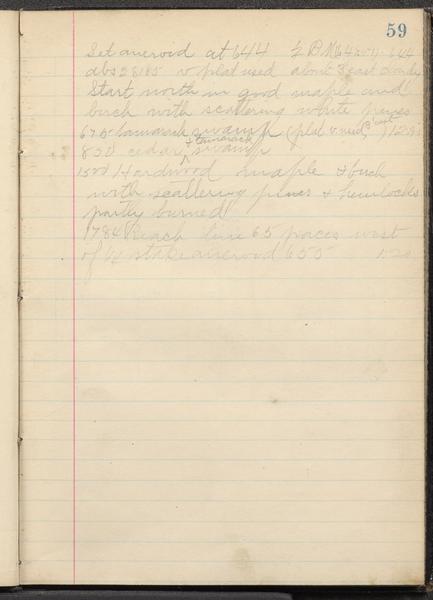 59
Set aneroid at 644 B M 644
abs 28185 v plat used about 3 east
Start north in good maple and
birch with scattering white pines
675 tamarack swamp (plat used
850 cedar + tamarack swamp
1500 Hardwood maple & birch
with scattering pines & hemlocks
partly burned
1784 Reach line 65 paces west
of 1/4 stake aneroid 655 1:20